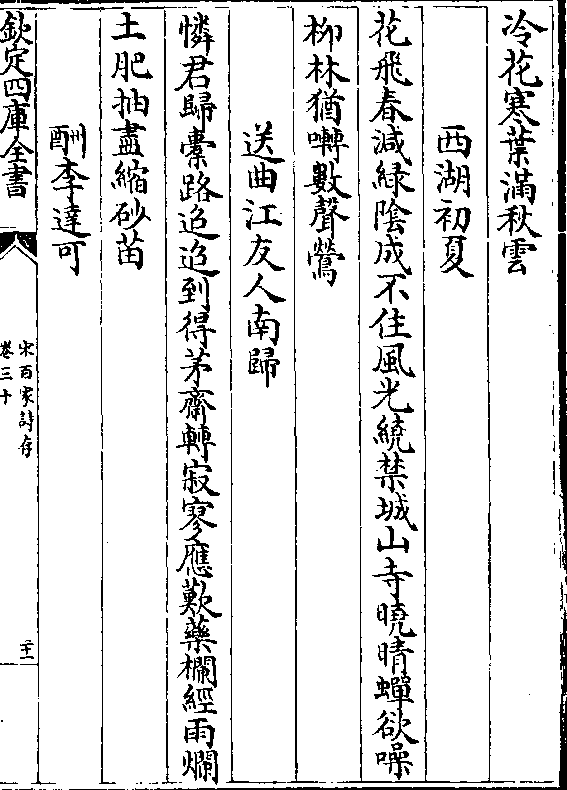 冷花寒葉滿秋雲
西湖初夏
花飛春減緑陰成不住風光繞禁城山寺曉晴蟬欲噪
柳林猶囀數聲鶯
送曲江友人南歸
憐君歸橐路迢迢到得茅齋轉寂寥應歎藥欄經雨爛
土肥抽盡縮砂苗
酬李達可
欽定四庫全書
宋百家詩存
卷三十
二十一